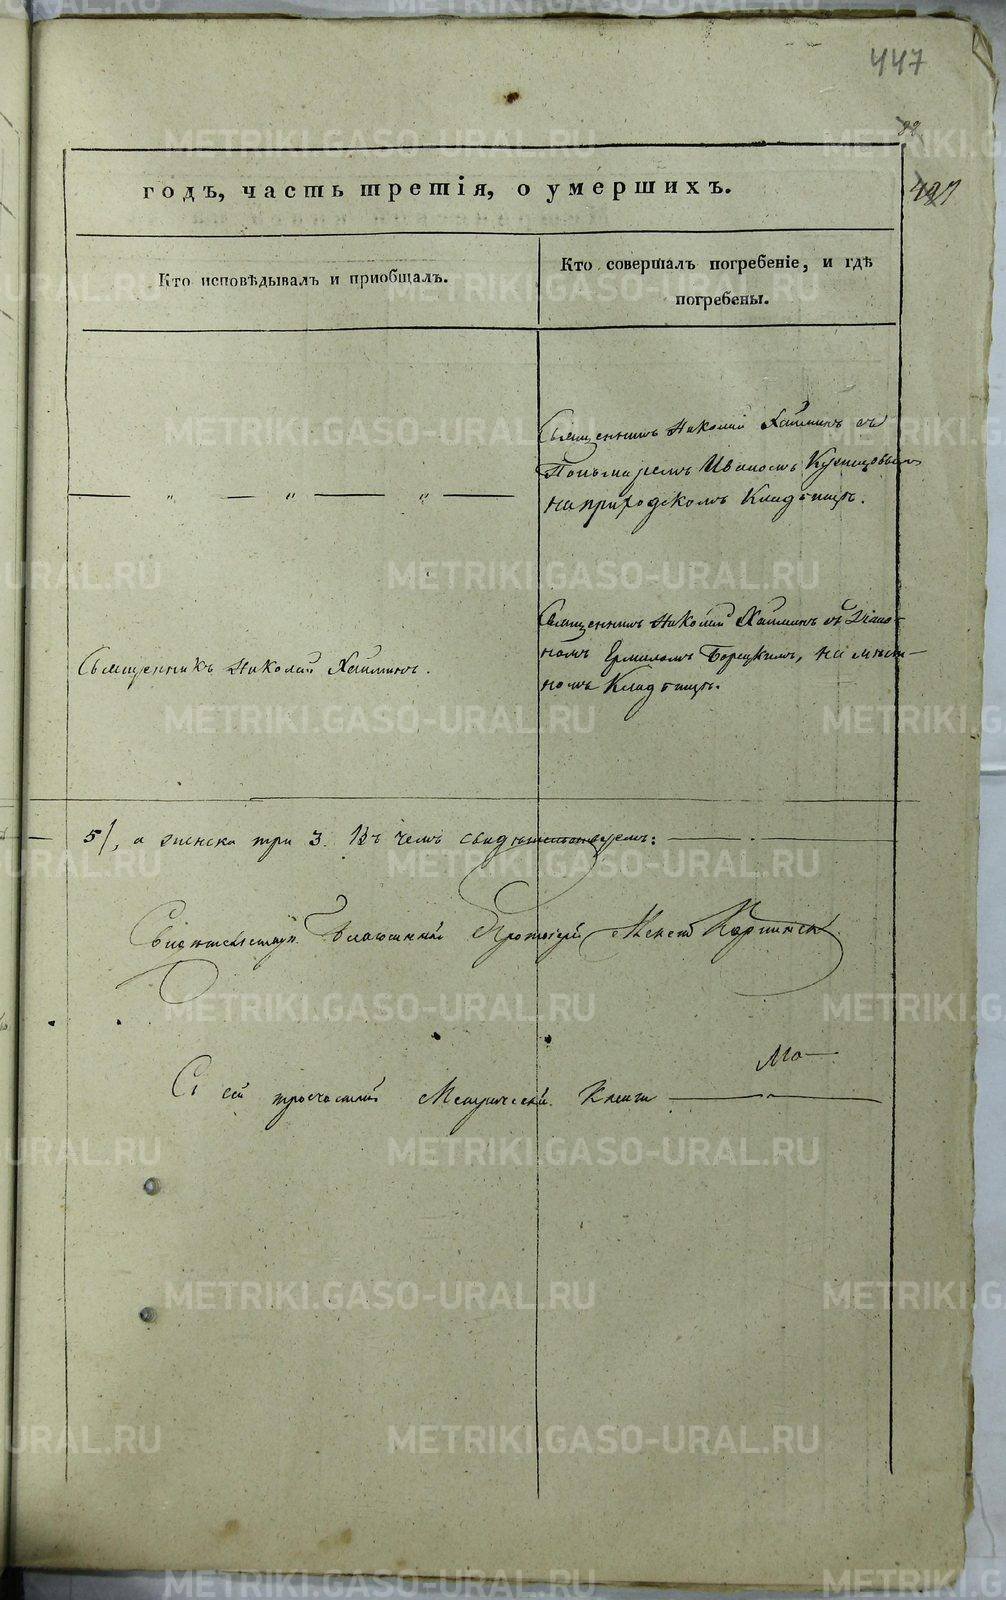 447
годъ, часть третія, о умершихъ.
Кто исповѣдывалъ и приобщалъ.
Кто совершалъ погребеніе, и гдѣ
погребены.
Священникъ Николай Хаминъ съ
Пономаремъ Иваномъ Кузнецовымъ
на приходскомъ Кладбищѣ.
Священникъ Николай Хаминъ съ Діако-
номъ Ермиломъ Борецкимъ, на мѣст-
номъ Кладбищѣ.
Священникъ Николай Хаминъ.
5/, а женска три 3. Въ чемъ свидѣтельствуемъ:
Протоіерей
Съ сей Метрической Книги
METRIKI.GASO-URAL.RU